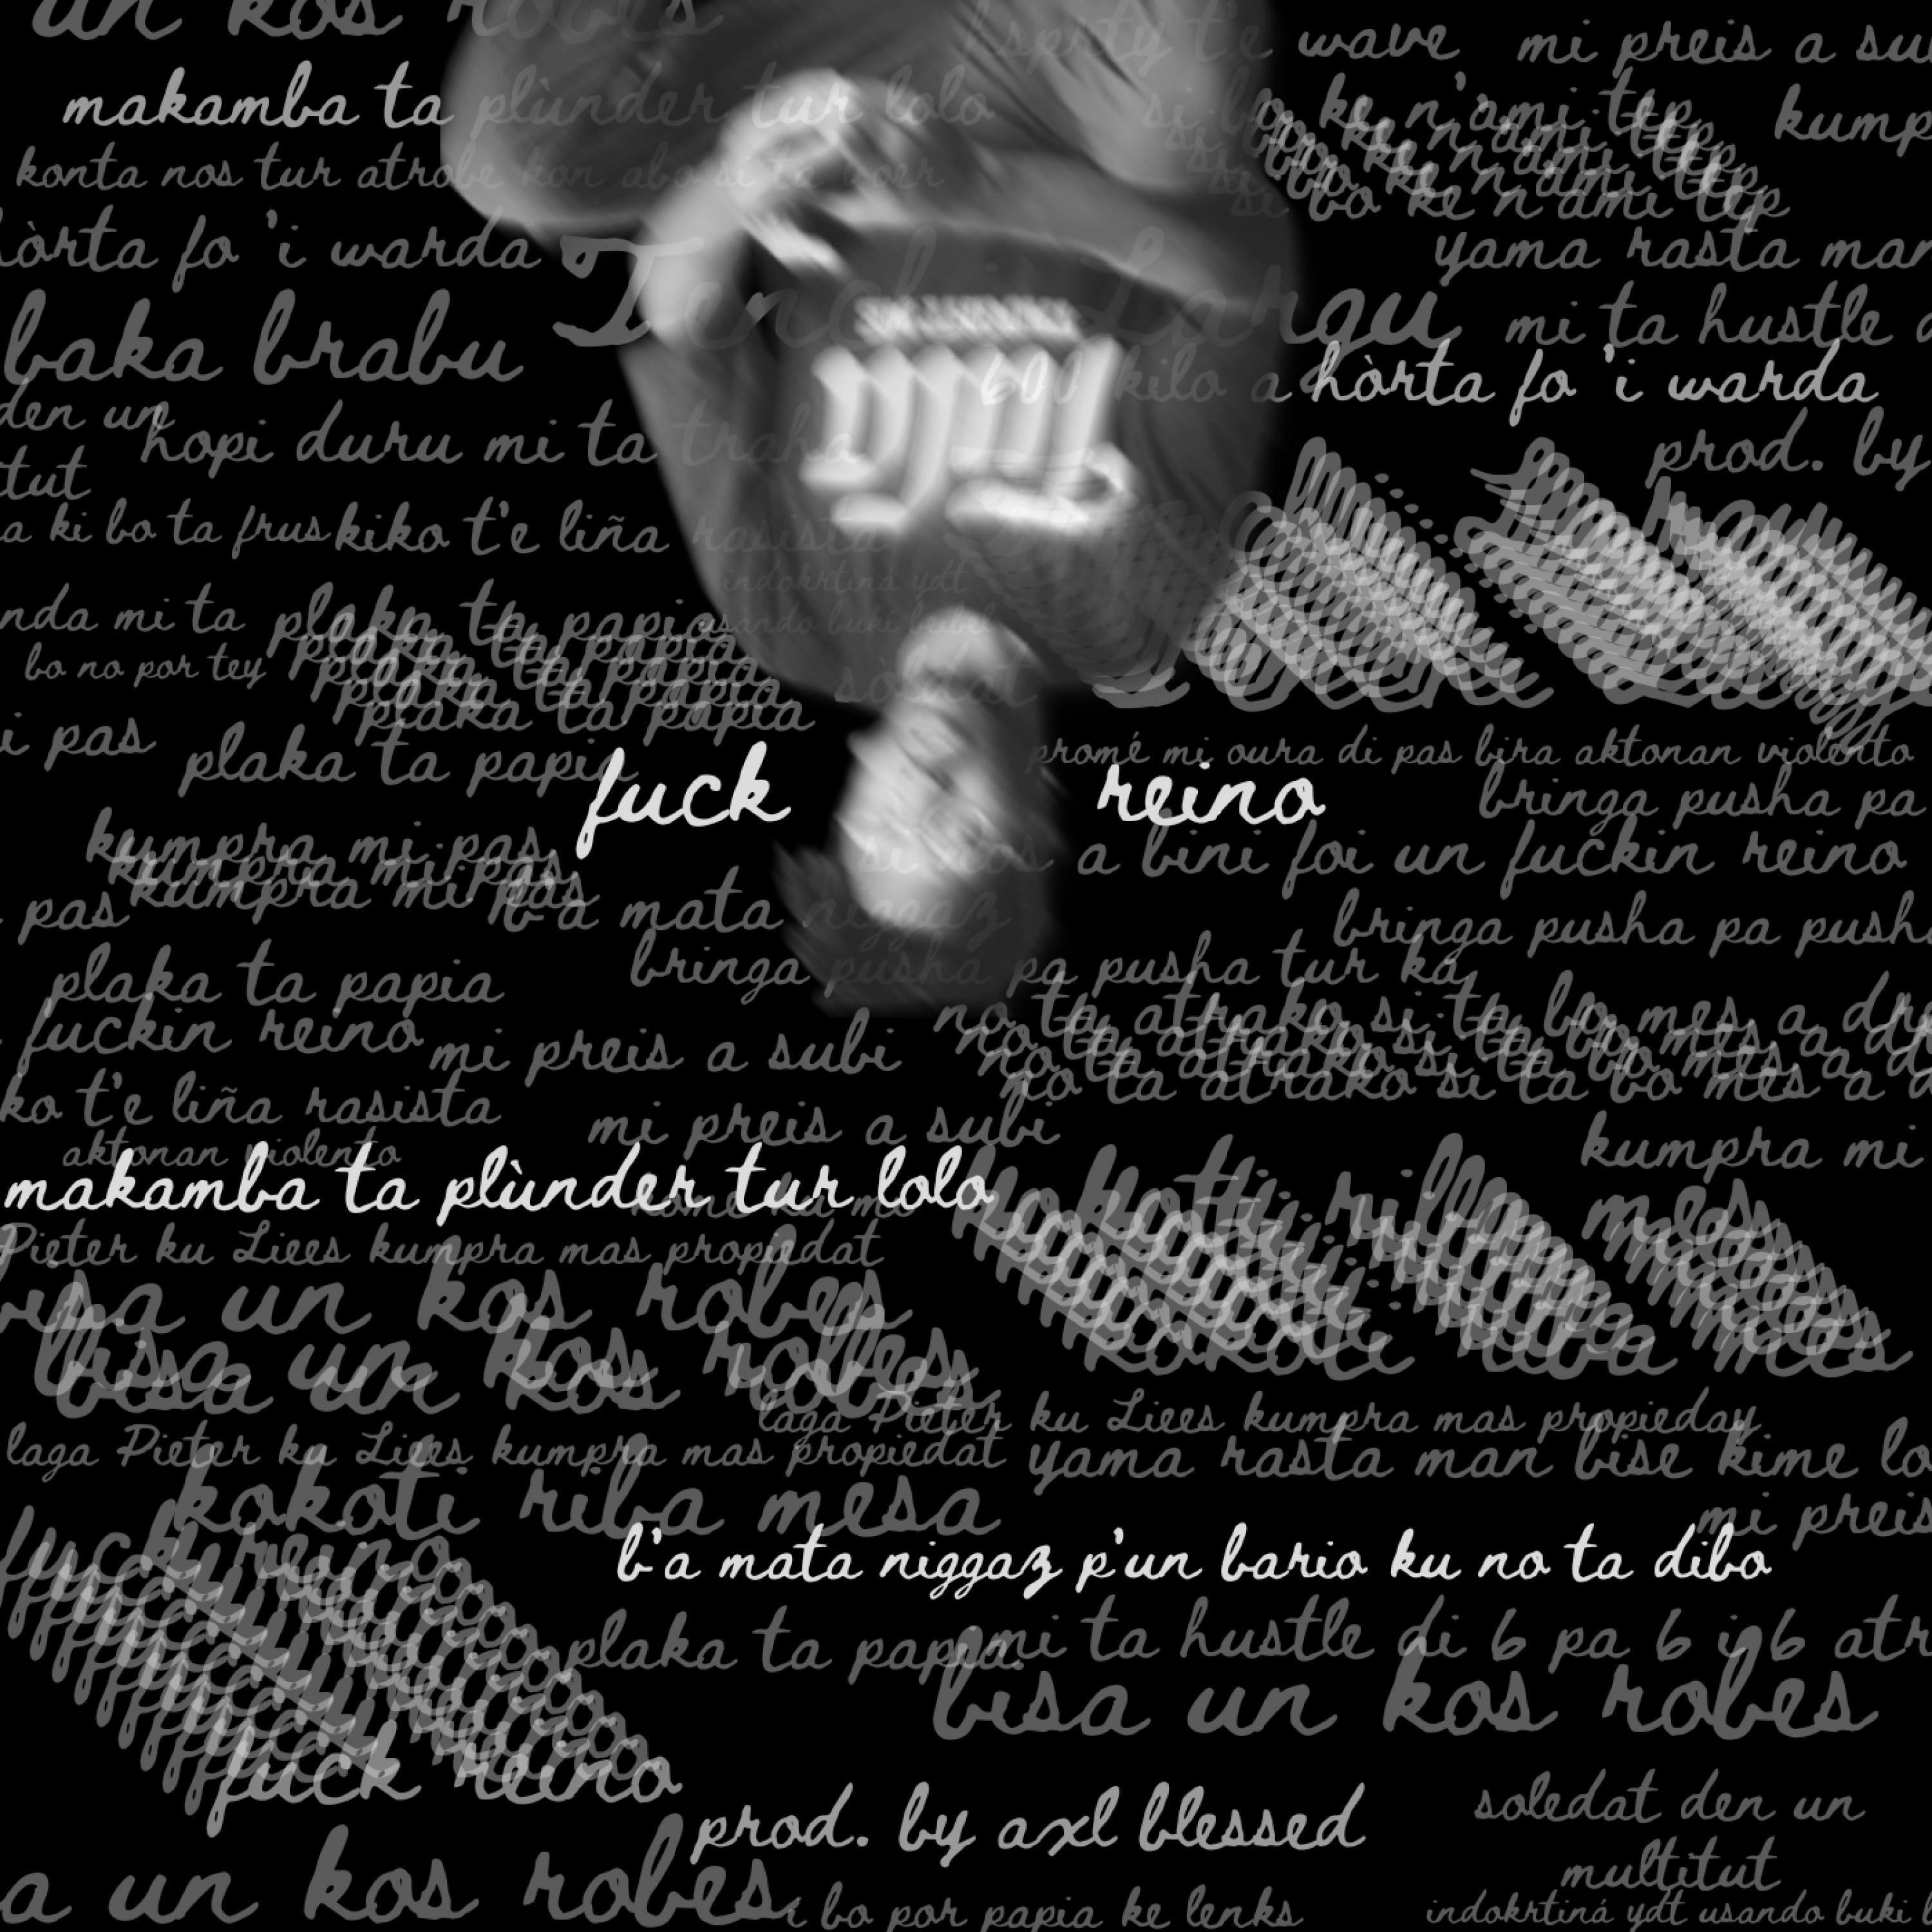 un kos robes
spity t'e wave mi preis a su
makamba ta plùnder tur lolo
si bo ke n'ami tep
si bo ke n'ami tep
si bo ke n'ami tep
si bo ke n'ami tep
si bo ke n'ami tep
kump
konta nos tur atrobe kon abo si ta
hòrta fo 'i warda
yama rasta man
Tenchi Largu
mi ta hustle d
baka brabu
600 kilo a hòrta fo 'i warda
den un
hopi duru mi ta traha
prod. by
tut
a ki bo ta frus
kiko t'e liña rasista
indokrtiná ydt
usando buki
nda mi ta
plaka ta papia
plaka ta papia
plaka ta papia
plaka ta papia
plaka ta papia
bo no por tey
i pas
plaka ta papia
promé mi oura di pas bira aktonan violento
fuck reino
bringa pusha pa
kumpra mi pas
kumpra mi pas
kumpra mi pas
si nos a bini foi un fuckin reino
pas
b'a mata niggaz
bringa pusha pa push
plaka ta papia
bringa pusha pa pusha tur ka
fuckin reino
mi preis a subi
no ta atrako si ta bo mes a dr
no ta atrako si ta bo mes a d
no ta atrako si ta bo mes a d
no ta atrako si ta bo mes a d
ko t'e liña rasista
mi preis a subi
kumpra mi
aktonan violento
makamba ta plùnder tur lolo
Pieter ku Liees kumpra mas propiedat
kokoti riba mes
bisa un kos robes
bisa un kos robes
bisa un kos robes
laga Pieter ku Liees kumpra mas propieday
laga Pieter ku Liees kumpra mas propiedat
yama rasta man bise kime lo
kokoti riba mesa
mi preis
fuck reino
b'a mata niggaz p'un bario ku no ta dibo
plaka ta papia
mi ta hustle di 6 pa 6 i 6 atr
bisa un kos robes
fuck reino
prod. by axl blessed
soledat den un
multitut
a un kos robes
i bo por papia ke lenks
indokrtiná ydt usando buki